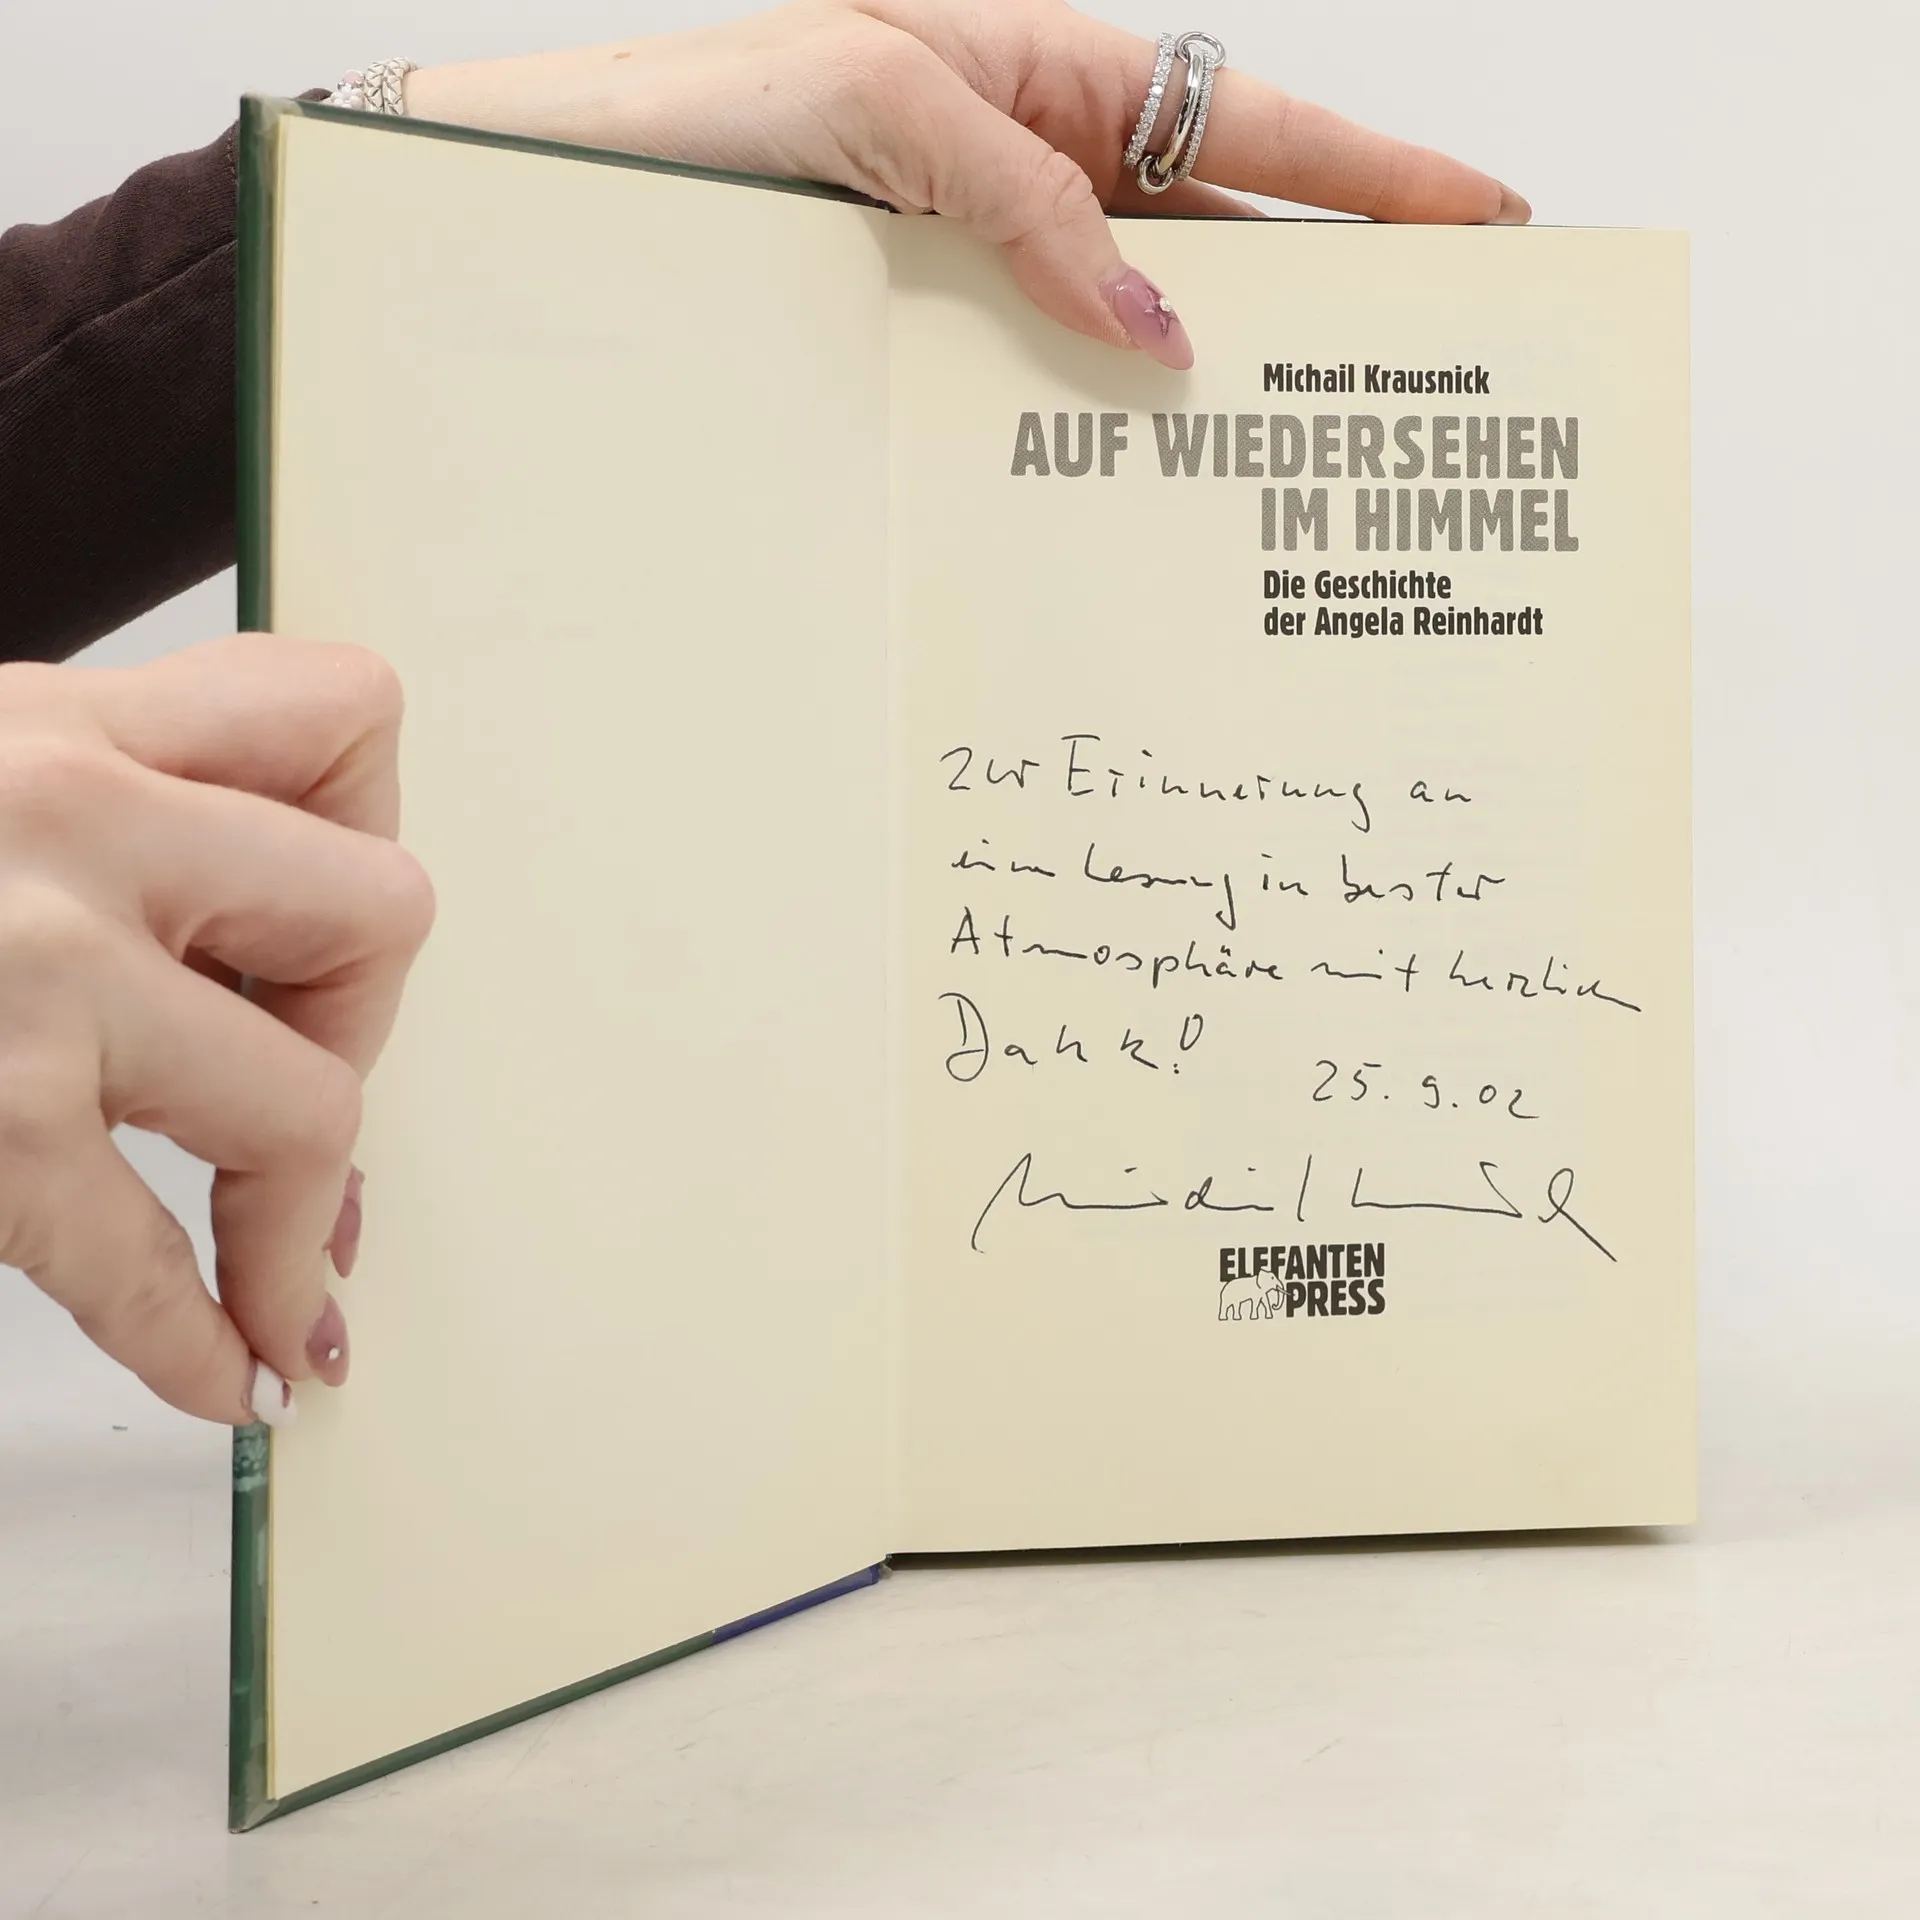 Michail Krausnick
AUF WIEDERSEHEN
IM HIMMEL
Die Geschichte
der Angela Reinhardt
Zur Erinnerung an
eine Lesung in bester
Atmosphäre mit herzlichem
Dank!
25. 9. 02
Michail Krausnick
ELEFANTEN
PRESS